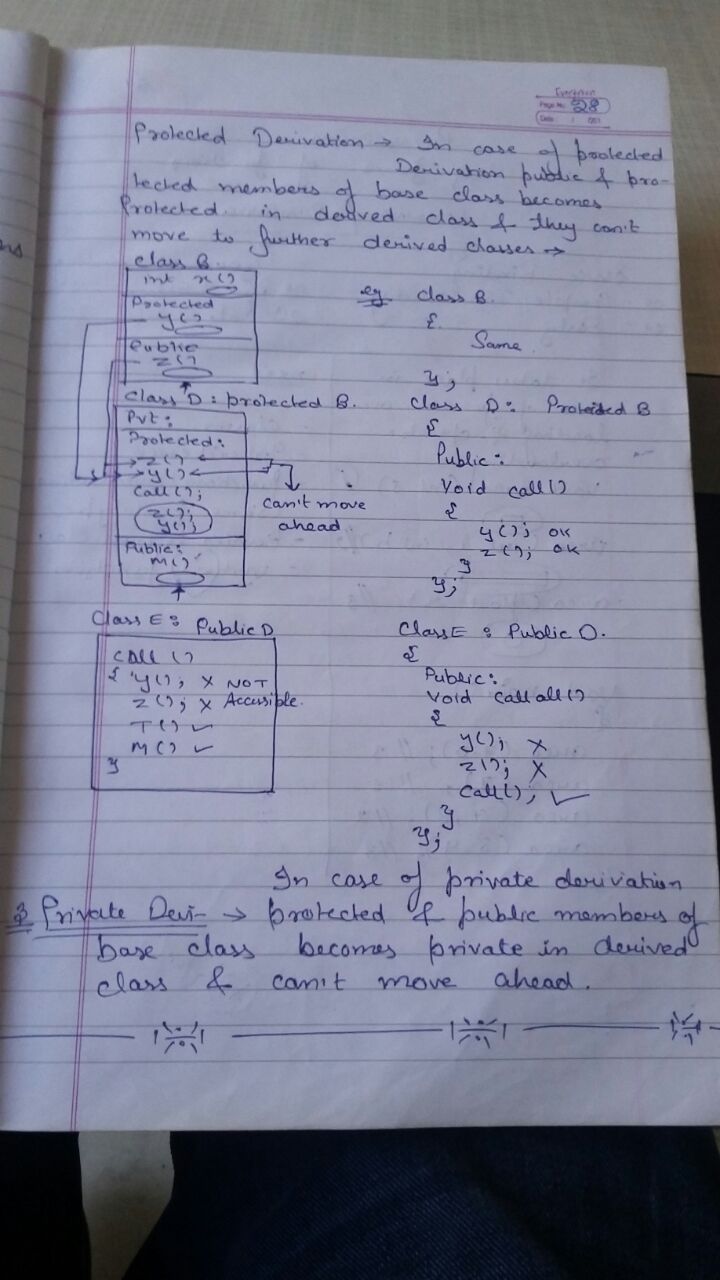 Evergreen
Page No. 28
Date : / /201
Protected Derivation → In case of protected
Derivation public & pro-
tected members of base class becomes
Protected in derived class & they can't
move to further derived classes →
class B
int x()
Protected
y()
Public
z()
class D : protected B.
Pvt :
Protected :
z()
y()
call();
z();
y();
Public:
M()
can't move
ahead.
eg class B.
{
Same
};
class D : Protected B
{
Public :
Void call()
{
y(); ok
z(); ok
}
};
Class E : Public D
Call ()
{ y(); X NOT
z(); X Accessible.
T() ✓
M() ✓
}
Class E : Public D.
{
Public :
Void call all()
{
y(); X
z(); X
Call(); ✓
}
};
In case of private derivation
3 Private Deri- → protected & public members of
base class becomes private in derived
class & can't move ahead.